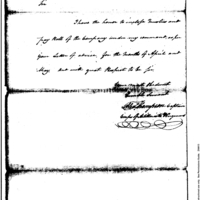 Sir
I have the honor to inclose Muster and
pay Rolls of the Company under my command, as per
your Letter of advice, for the months of April and
May. And with great Respect to be Sir
Your most Obedient
Humble Servant
Captain
Corps of Artillerists & Engineers